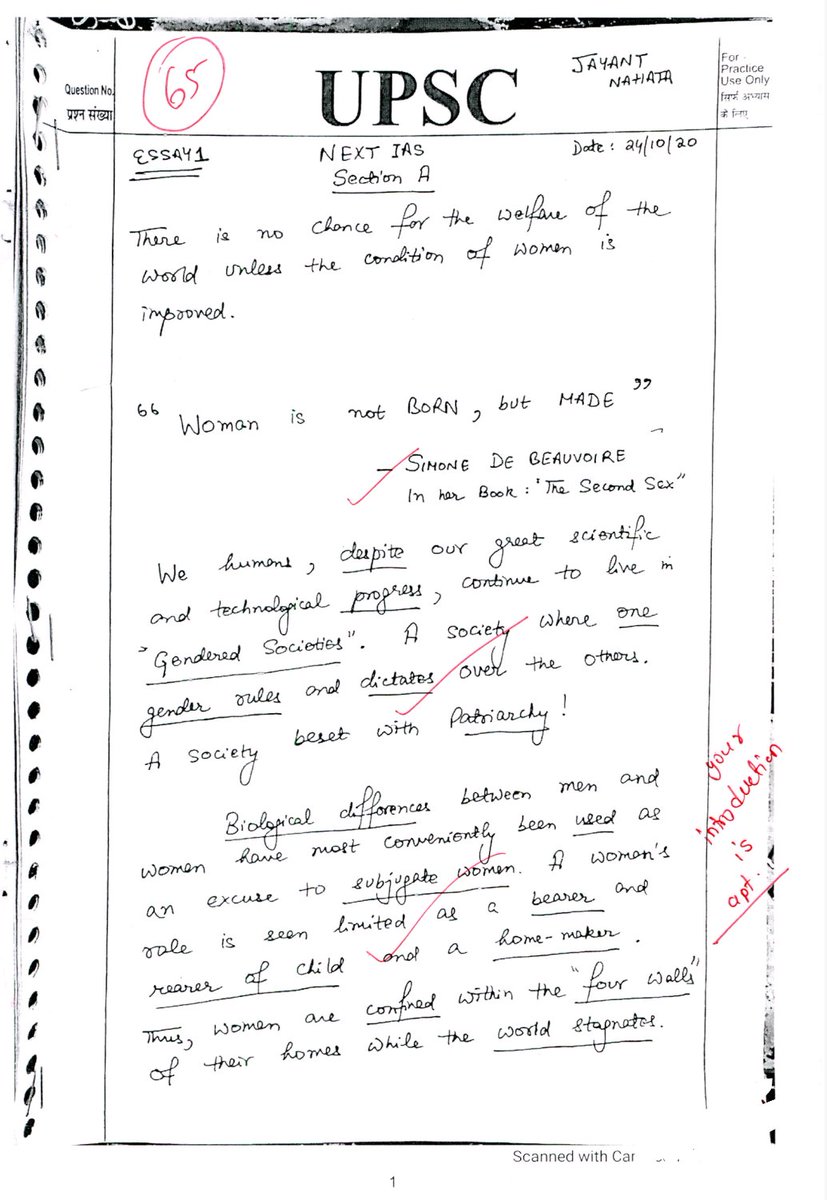 Question No.
प्रश्न संख्या
65
UPSC
JAYANT
NAHATA
For
Practice
Use Only
सिर्फ अभ्यास
के लिए
ESSAY 1
NEXT IAS
Date: 24/10/20
Section A
There is no chance for the welfare of the
world unless the condition of women is
improved.
"Woman is not BORN, but MADE"
- SIMONE DE BEAUVOIRE
In her Book: "The Second Sex"
We humans, despite our great scientific
and technological progress, continue to live in
"Gendered Societies". A society where one
gender rules and dictates over the others.
A society beset with Patriarchy!
Biological differences between men and
women have most conveniently been used as
an excuse to subjugate women. A woman's
role is seen limited as a bearer and
rearer of child and a home-maker.
Thus, women are confined within the "four walls"
of their homes while the world stagnates.
your
introduction
is
apt.
Scanned with Car
1